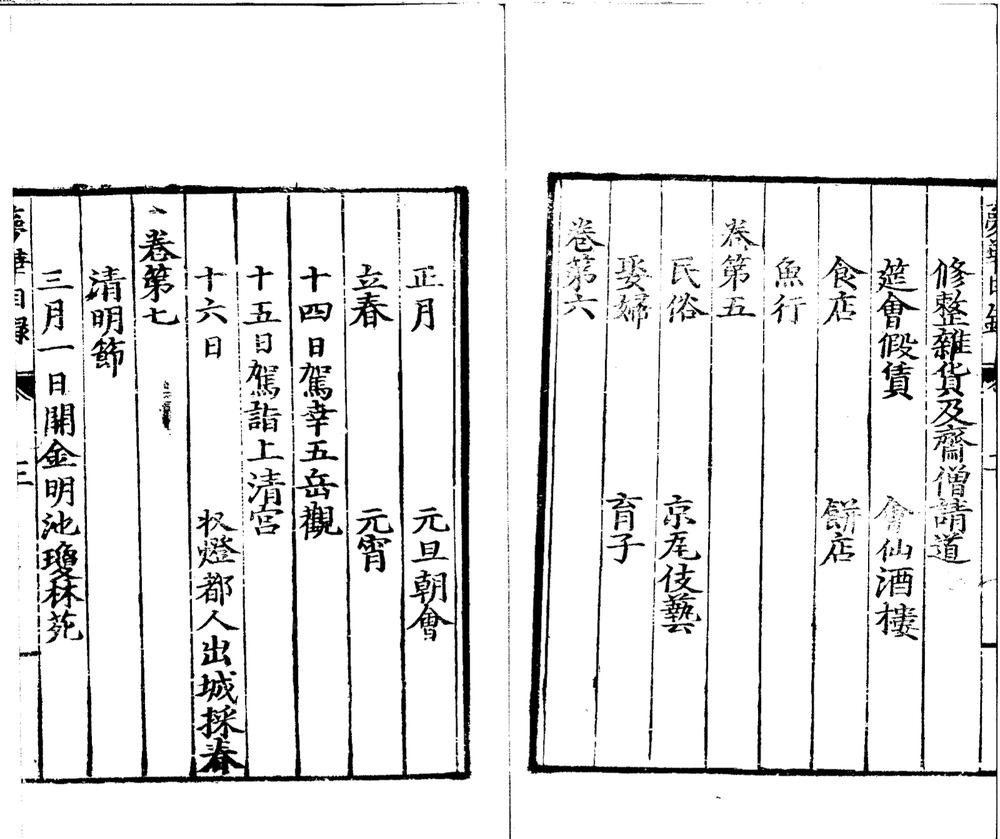 修整雜貨及齋僧請道
筵會假賃　會仙酒樓
食店　餅店
魚行
卷第五
民俗　京瓦伎藝
娶婦　育子
卷第六
正月　元旦朝會
立春　元宵
十四日駕幸五岳觀
十五日駕詣上清宮
十六日　収燈都人出城採春
卷第七
清明節
三月一日開金明池瓊林苑
夢華目錄
三